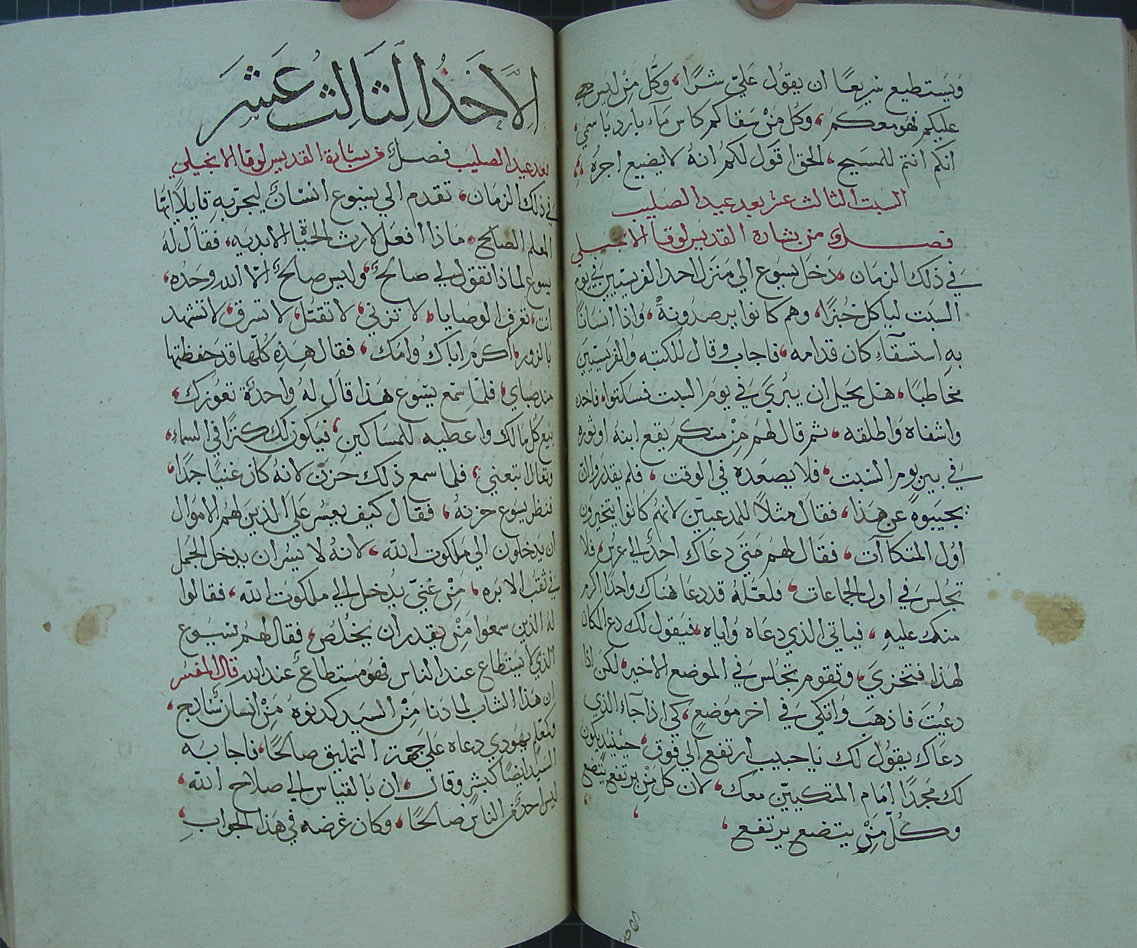 ويستطيع سريعًا ان يقول عليّ شرًا، وكل من ليس هو
عليكم فهو معكم، وكل من سقاكم كاس ماء بارد باسمي،
انكم انتم للمسيح، الحق اقول لكم انه لا يضيع اجره،
السبت الثالث عشر بعد عيد الصليب
فصل من بشارة القديس لوقا الانجيلي
في ذلك الزمان، دخل يسوع الي منزل احد الفريسيين في يوم
السبت لياكل خبزًا، وهم كانوا يرصدونه، واذا انسانا
به استسقاء كان قدامه، فاجاب وقال للكتبه والفريسيين
مخاطبًا، هل يحل ان يبري في يوم السبت فسكتوا، فاخذه
واشفاه واطلقه، ثم قال لهم من منكم يقع ابنه او ثوره
في بير يوم السبت، فلا يصعده في الوقت، فلم يقدروا ان
يجيبوه عن هذا، فقال مثلًا للمدعيين لانهم كانوا يتخيرون
اول المتكاات، فقال لهم متي دعاك احد الي عرس، فلا
تجلس في اول الجماعات، فلعله قد دعا هناك واحدا اكرم
منك عليه، فياتي الذي دعاه واياك، فيقول لك دع المكان
لهذا فتخزي، وتقوم تجلس في الموضع الاخير، لكن اذا
دعيت فاذهب واتكي في اخر موضع، كي اذا جاء الذي
دعاك يقول لك يا حبيب ارتفع الي فوق، حينيذ يكون
لك مجدًا امام المتكيين معك، لان كل من يرتفع يتضع
وكل من يتضع يرتفع،
الاحد
الاحد الثالث عشر
بعد عيد الصليب فصل من بشارة القديس لوقا الانجيلي
في ذلك الزمان، تقدم الي يسوع انسان ليجربه قايلًا ايها
المعلم الصالح، ماذا افعل لارث الحياة الابديه، فقال له
يسوع لماذا تقول لي صالح، وليس صالح الا الله وحده،
انت تعرف الوصايا، لا تزني، لا تقتل، لا تسرق، لا تشهد
بالزور، اكرم اباك وامك، فقال هذه كلها قد حفظتها
منذ صباي، فلما سمع يسوع هذا قال له واحدة تعوزك،
بيع كل مالك واعطيه للمساكين، فيكون لك كنزًا في السماء،
وتعال اتبعني، فلما سمع ذلك حزن لانه كان غنيًا جدًا،
فنظر يسوع حزنه، فقال كيف يعسر علي الذين لهم الاموال
ان يدخلون الي ملكوت الله، لانه لا يسر ان يدخل الجمل
في ثقب الابره، من غني يدخل الي ملكوت الله، فقالوا
له الذين سمعوا من يقدر ان يخلص، فقال لهم يسوع
الذي لا يستطاع عند الناس فهو مستطاع عند الله قال المفسر
ان هذا الشاب لما دنا من السيد كدنوه من انسان شايع،
ومعلم يهودي دعاه علي جهة التمليق صالحًا، فاجابه
السيد ايضا كبشر وقال، ان بالقياس الي صلاح الله،
ليس احد من الناس صالحًا، وكان غرضه في هذا الجواب